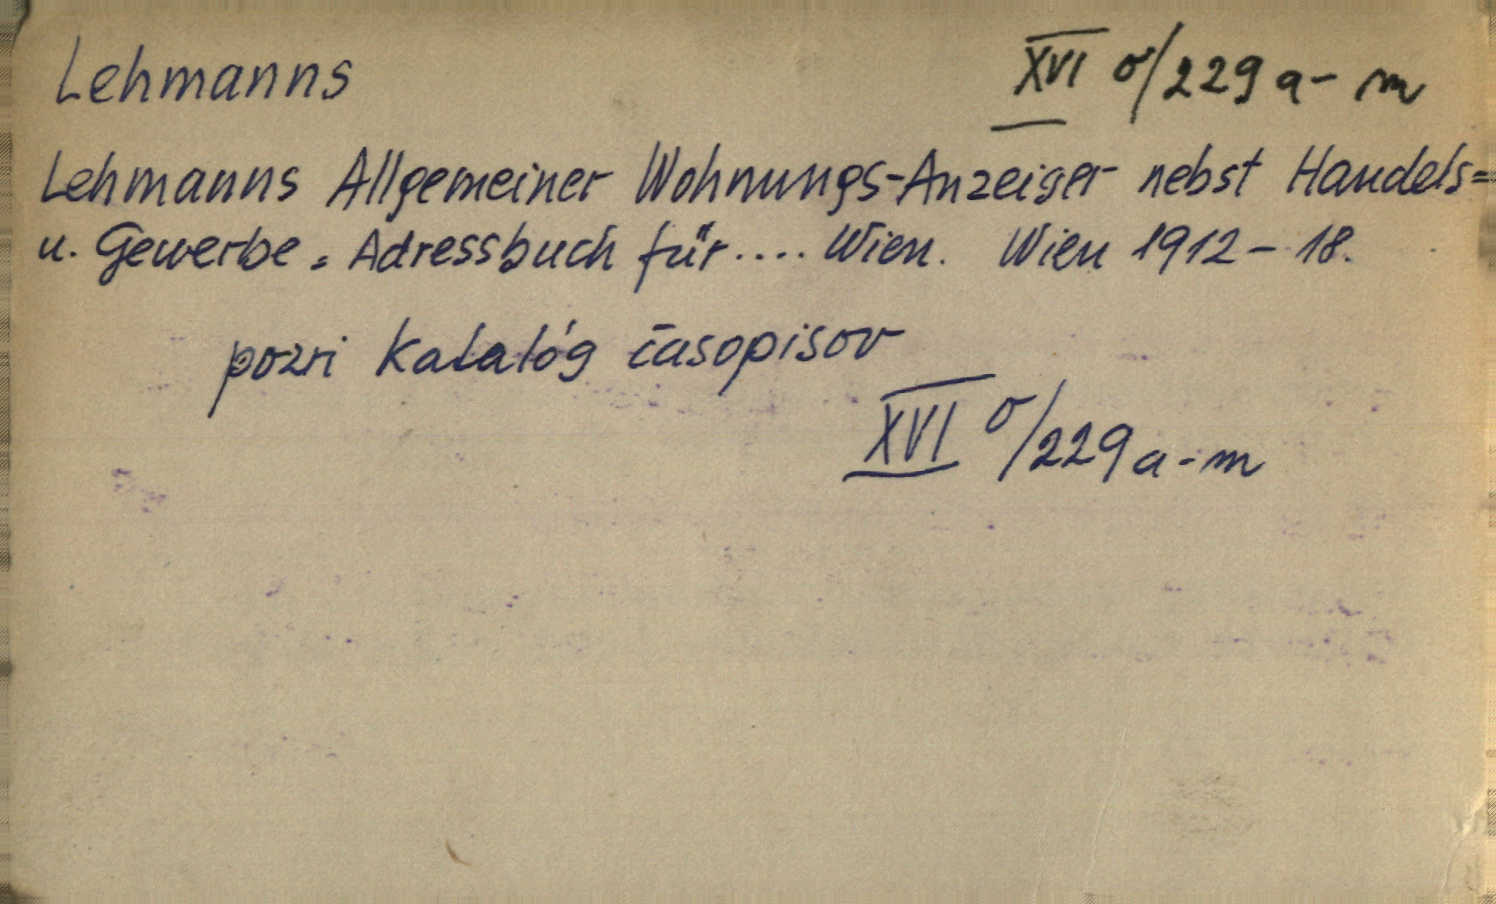 Lehmanns XVI σ/229 a- m
Lehmanns Allgemeiner Wohnungs-Anzeiger nebst Handels=
u. Gewerbe = Adressbuch für .... Wien. Wien 1912 - 18.
pozri Katalóg časopisov
XVI σ/229 a - m